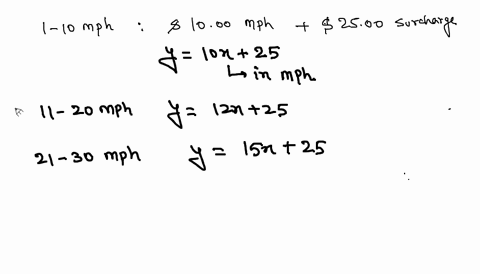 1-10 mph : $ 10.00 mph + $ 25.00 surcharge
y = 10x + 25
↳ in mph
11-20 mph y = 12x + 25
21-30 mph y = 15x + 25